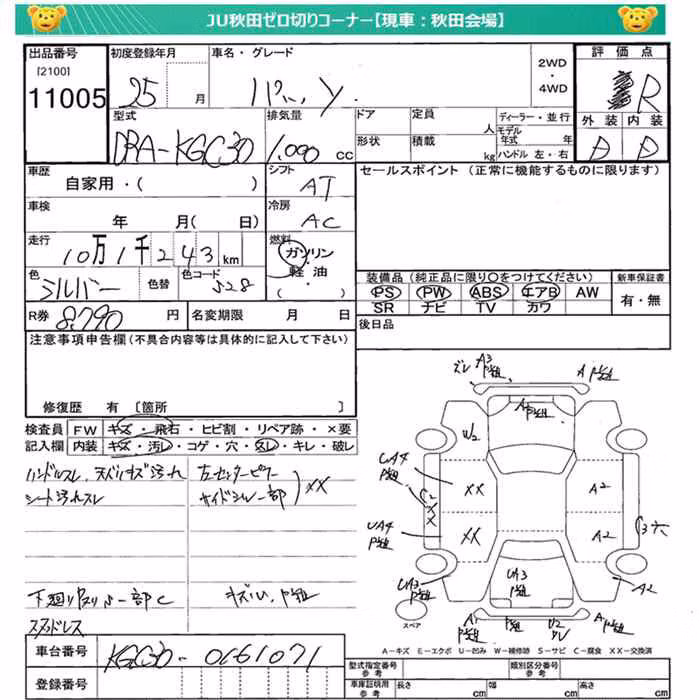 JU秋田ゼロ切りコーナー【現車：秋田会場】
出品番号
[2100]
11005
初度登録年月
25 月
車名・グレード
2WD
・
4WD
評価点
R
外装 内装
D D
型式
DBA-KGC30
排気量
1.000 CC
ドア
形状
定員
人
積載
kg
ディーラー・並行
モデル
年式 年
ハンドル 左・右
車歴
自家用・( )
シフト
AT
セールスポイント (正常に機能するものに限ります)
車検
年 月( 日)
冷房
AC
走行
10万1千243km
燃料
ガソリン
軽油
( )
色
シルバー
色替
色コード
S28
装備品 (純正品に限り〇をつけてください)
PS PW ABS エアB AW
SR ナビ TV カワ
新車保証書
有・無
R券 8,790円
名変期限 月 日
後日品
注意事項申告欄 (不具合内容等は具体的に記入して下さい)
修復歴 有 〔箇所 〕
検査員
記入欄
FW キズ・飛石・ヒビ割・リペア跡・×要
内装 キズ・汚レ・コゲ・穴・スレ・キレ・破レ
ハンドルスレ
シート汚れスレ
左センターピラー
サイドシル一部
XX
スタッドレス
A3
A
W2
UA4
XX
A2
UA4
XX
A2
UA3
UA3
A2
A1
U2
A
スペア
A－キズ E－エクボ U－凹み W－補修跡 S－サビ C－腐食 XX－交換済
車台番号
KGC30-0061071
登録番号
型式指定番号
参考
類別区分番号
参考
車庫証明用
参考
長さ cm
幅 cm
高さ cm